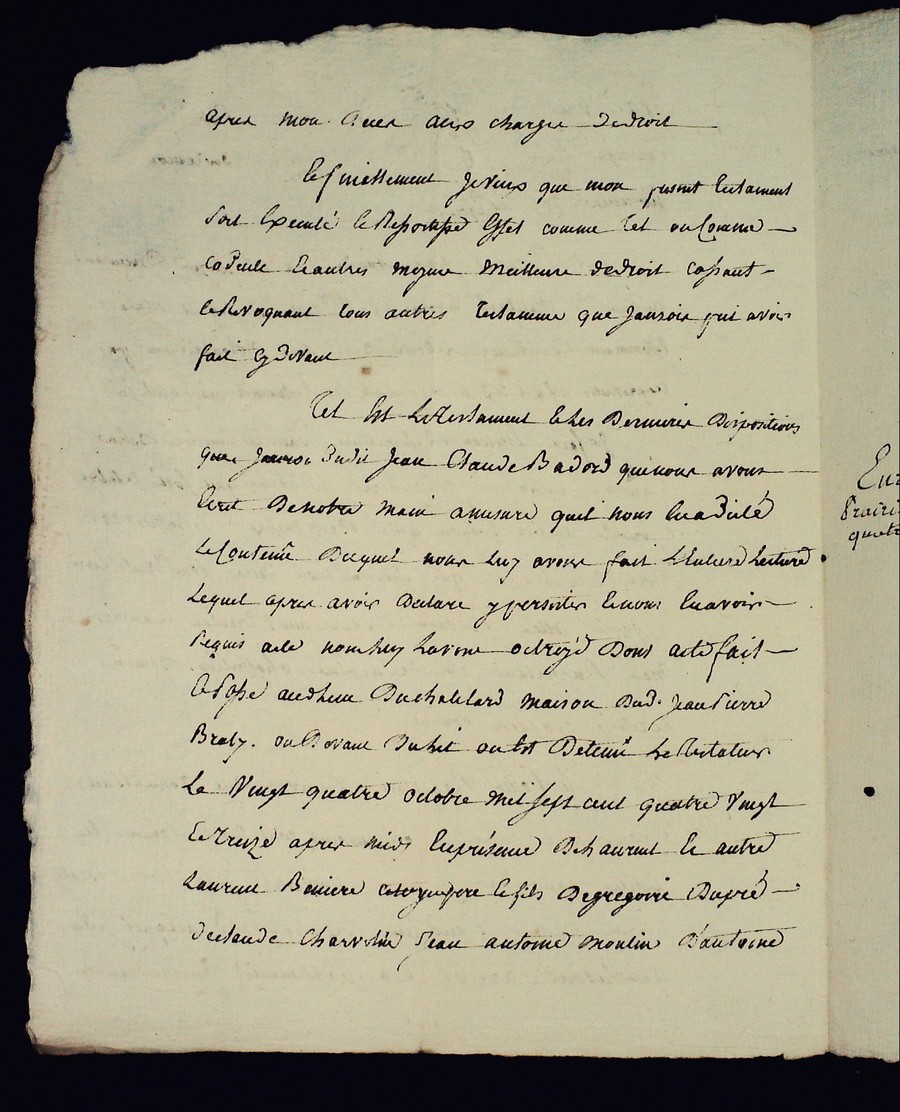 apres mon deces aux charges de droit
Et finallement je veux que mon present testament
soit Executé et
comme tel ou Comme
Codicile et autres moyens meilleure de droit
et Revoquant tous autres testamens que j'aurois put avoir
fait cy devant
Tel Est Le testament et les Dernieres Dispositions
que dudit Jean Claude Badord que nous avons
Ecrit De notre main amesure quil nous la dicté
Le Contenu Duquel nous Luy avons fait L'Entiere Lecture
Lequel apres avoir Declare y persister et nous En avoir
Requis acte nous luy Lavons octroyé Dont acte fait
maison Dud. Jean Pierre
Braly. ou Devant Du Lit ou Est Detenu Le Testateur
Le Vingt quatre octobre mil sept cent quatre Vingt
et treize apres midi En presence De Laurent et autre
Laurent pere et fils De gregoire Dupré
de Claude Jean antoine moulin D'antoine
En
Prairi
quatr